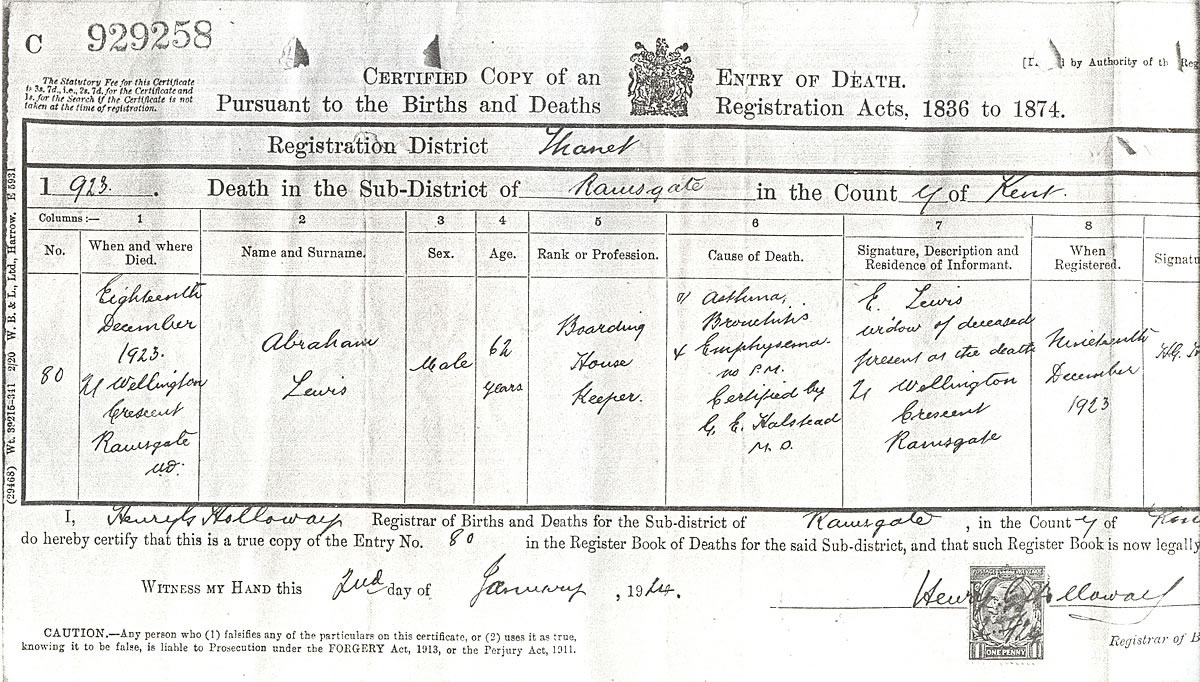 C 929258
The Statutory Fee for this Certificate
is 3s. 7d., i.e., 2s. 7d. for the Certificate and
1s. for the Search if the Certificate is not
taken at the time of registration.
[ by Authority of th Reg
CERTIFIED COPY OF AN ENTRY OF DEATH.
Pursuant to the Births and Deaths Registration Acts, 1836 to 1874.
Registration District Thanet
1 923. Death in the Sub-District of Ramsgate in the County of Kent.
Columns :— 1 2 3 4 5 6 7 8
No. When and where Died. Name and Surname. Sex. Age. Rank or Profession. Cause of Death. Signature, Description and Residence of Informant. When Registered. Signatu
80
Eighteenth
December
1923.
Wellington
Crescent
Ramsgate
Abraham
Lewis
Male
62
years
Boarding
House
Keeper.
Asthma,
Bronchitis
& Emphysema.
no P.M.
Certified by
G. E. Halstead
M.D.
E. Lewis
widow of deceased
present at the death
Wellington
Crescent
Ramsgate
Nineteenth
December
1923
H.G.
I, Holloway Registrar of Births and Deaths for the Sub-district of Ramsgate, in the County of Ken
do hereby certify that this is a true copy of the Entry No. 80 in the Register Book of Deaths for the said Sub-district, and that such Register Book is now legally
WITNESS MY HAND this 2nd day of January, 1924.
Henry Holloway
Registrar of B
ONE PENNY
CAUTION.—Any person who (1) falsifies any of the particulars on this certificate, or (2) uses it as true,
knowing it to be false, is liable to Prosecution under the FORGERY Act, 1913, or the Perjury Act, 1911.
(29468) Wt. 39215-341 2/20 W. B. & L., Ltd., Harrow. E 5931